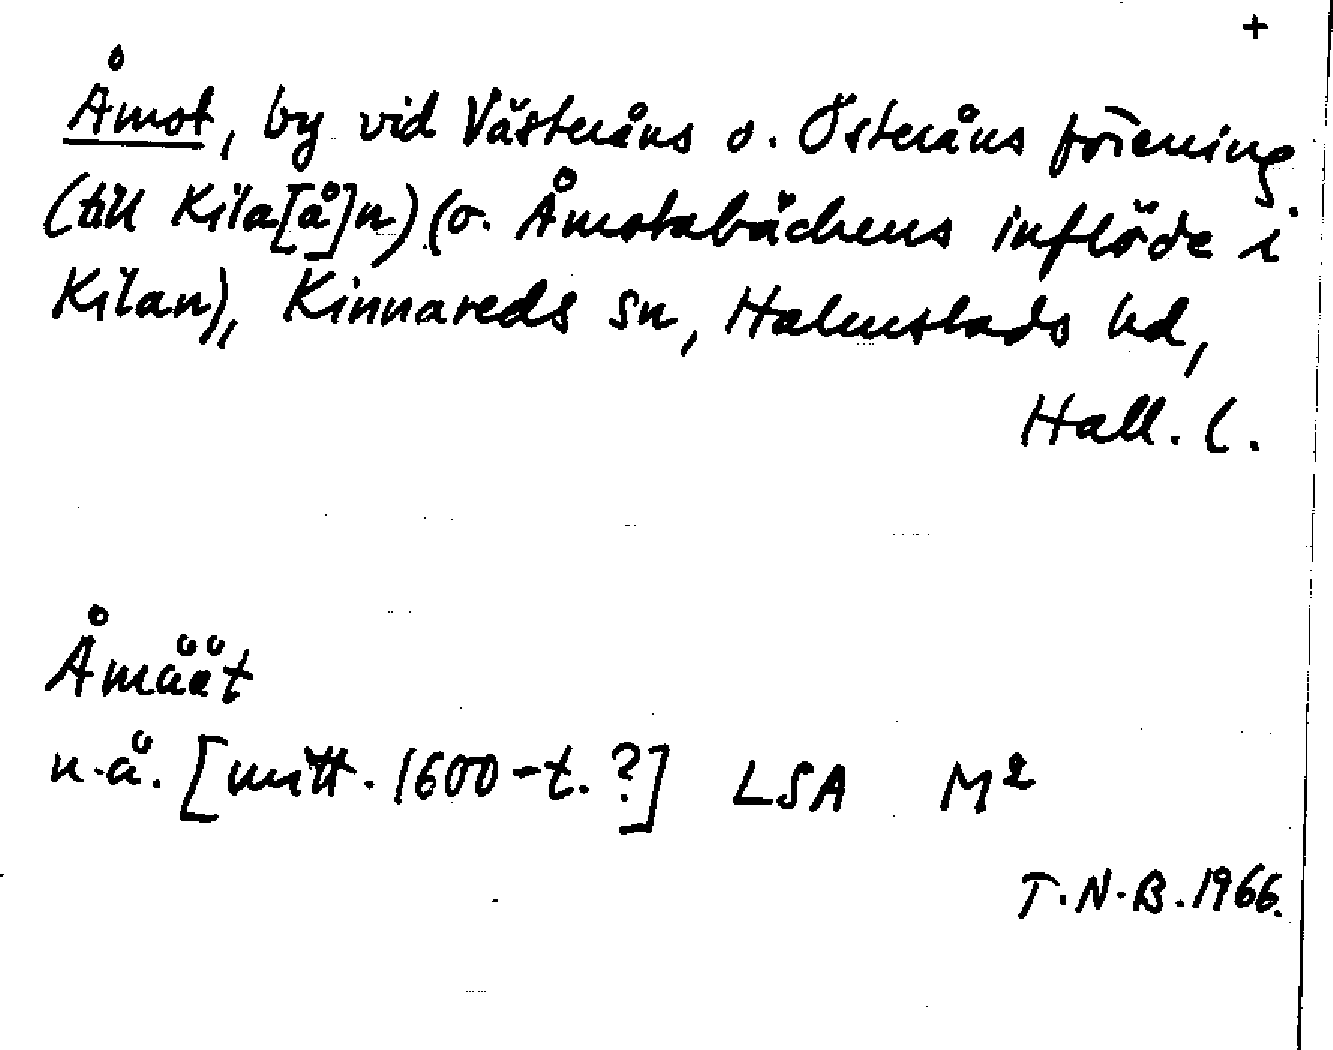 +
Åmot, by vid Västeråns o. Österåns förening
(till Kila[å]n) (o. Åmotabäckens inflöde i
Kilan), Kinnareds sn, Halmstads hd,
Hall. l.
Åmäät
u.å. [mitt. 1600-t.?] LSA M²
T.N.B. 1966.